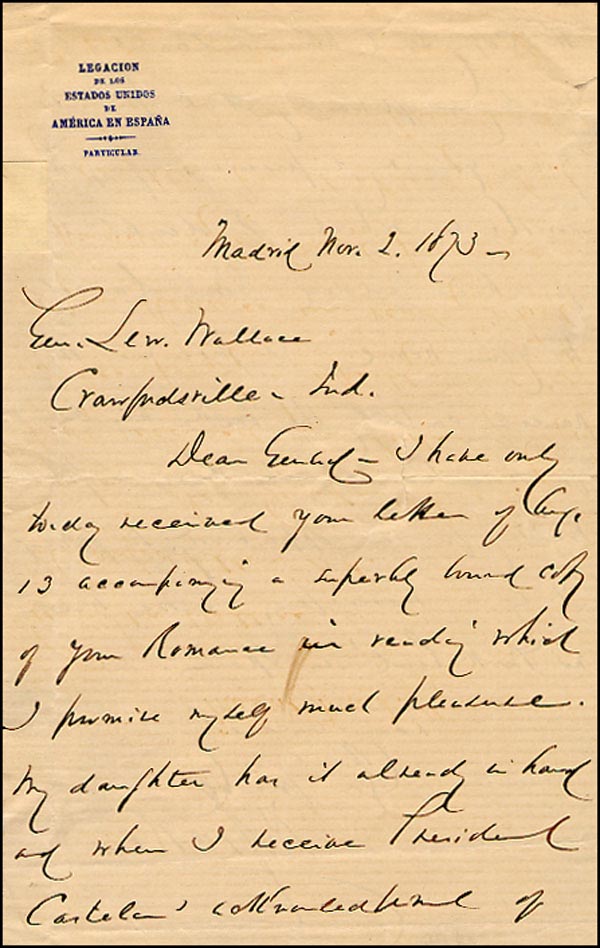 LEGACION
DE LOS
ESTADOS UNIDOS
DE
AMÉRICA EN ESPAÑA
PARTICULAR.
Madrid Nov. 2. 1873 –
Gen. Lew. Wallace
Crawfordsville – Ind.
Dear General – I have only
today received your letter of Aug.
13 accompanying a superbly bound copy
of your Romance in reading which
I promise myself much pleasure.
My daughter has it already in hand
and when I receive President
Castelar's acknowledgment of